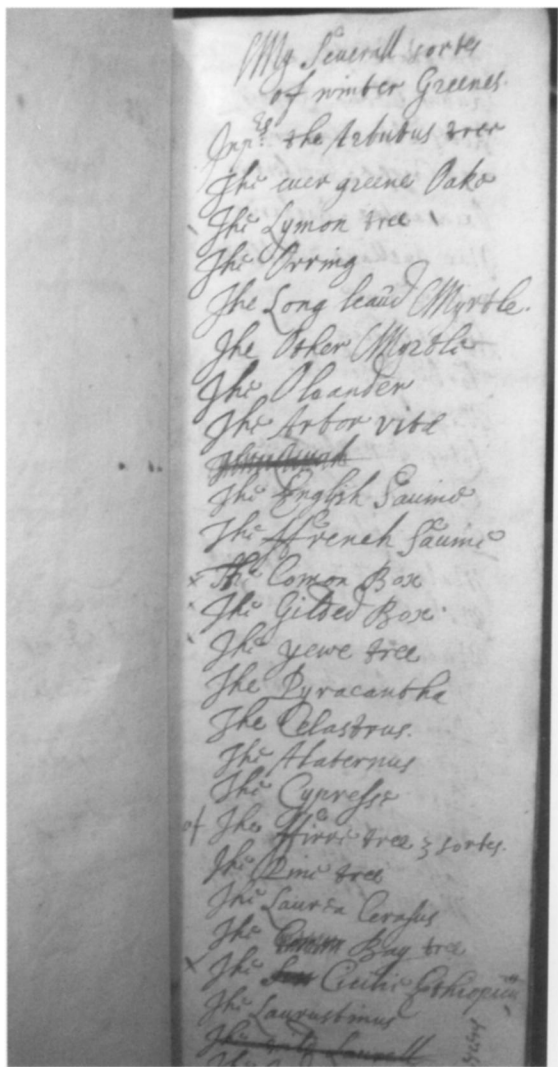 My Severall sortes
of winter Greenes.
Inp.es the Arbutus tree
The ever greene Oake
The Lymon tree
The Orring
The Long leaud Myrtle.
The Other Myrtle
The Oleander
The Arbor vitæ
The English Sauine
The ffrench Sauine
x The Comon Box
The Gilded Box
The yewe tree
The Pyracantha
The Celastrus.
The Alaternus
The Cypresse
of The ffirre tree 3 sortes.
The Pine tree
The Laurea Cerasus
The Bay tree
x The Ethiopicu
The Laurustinus
The Laurell